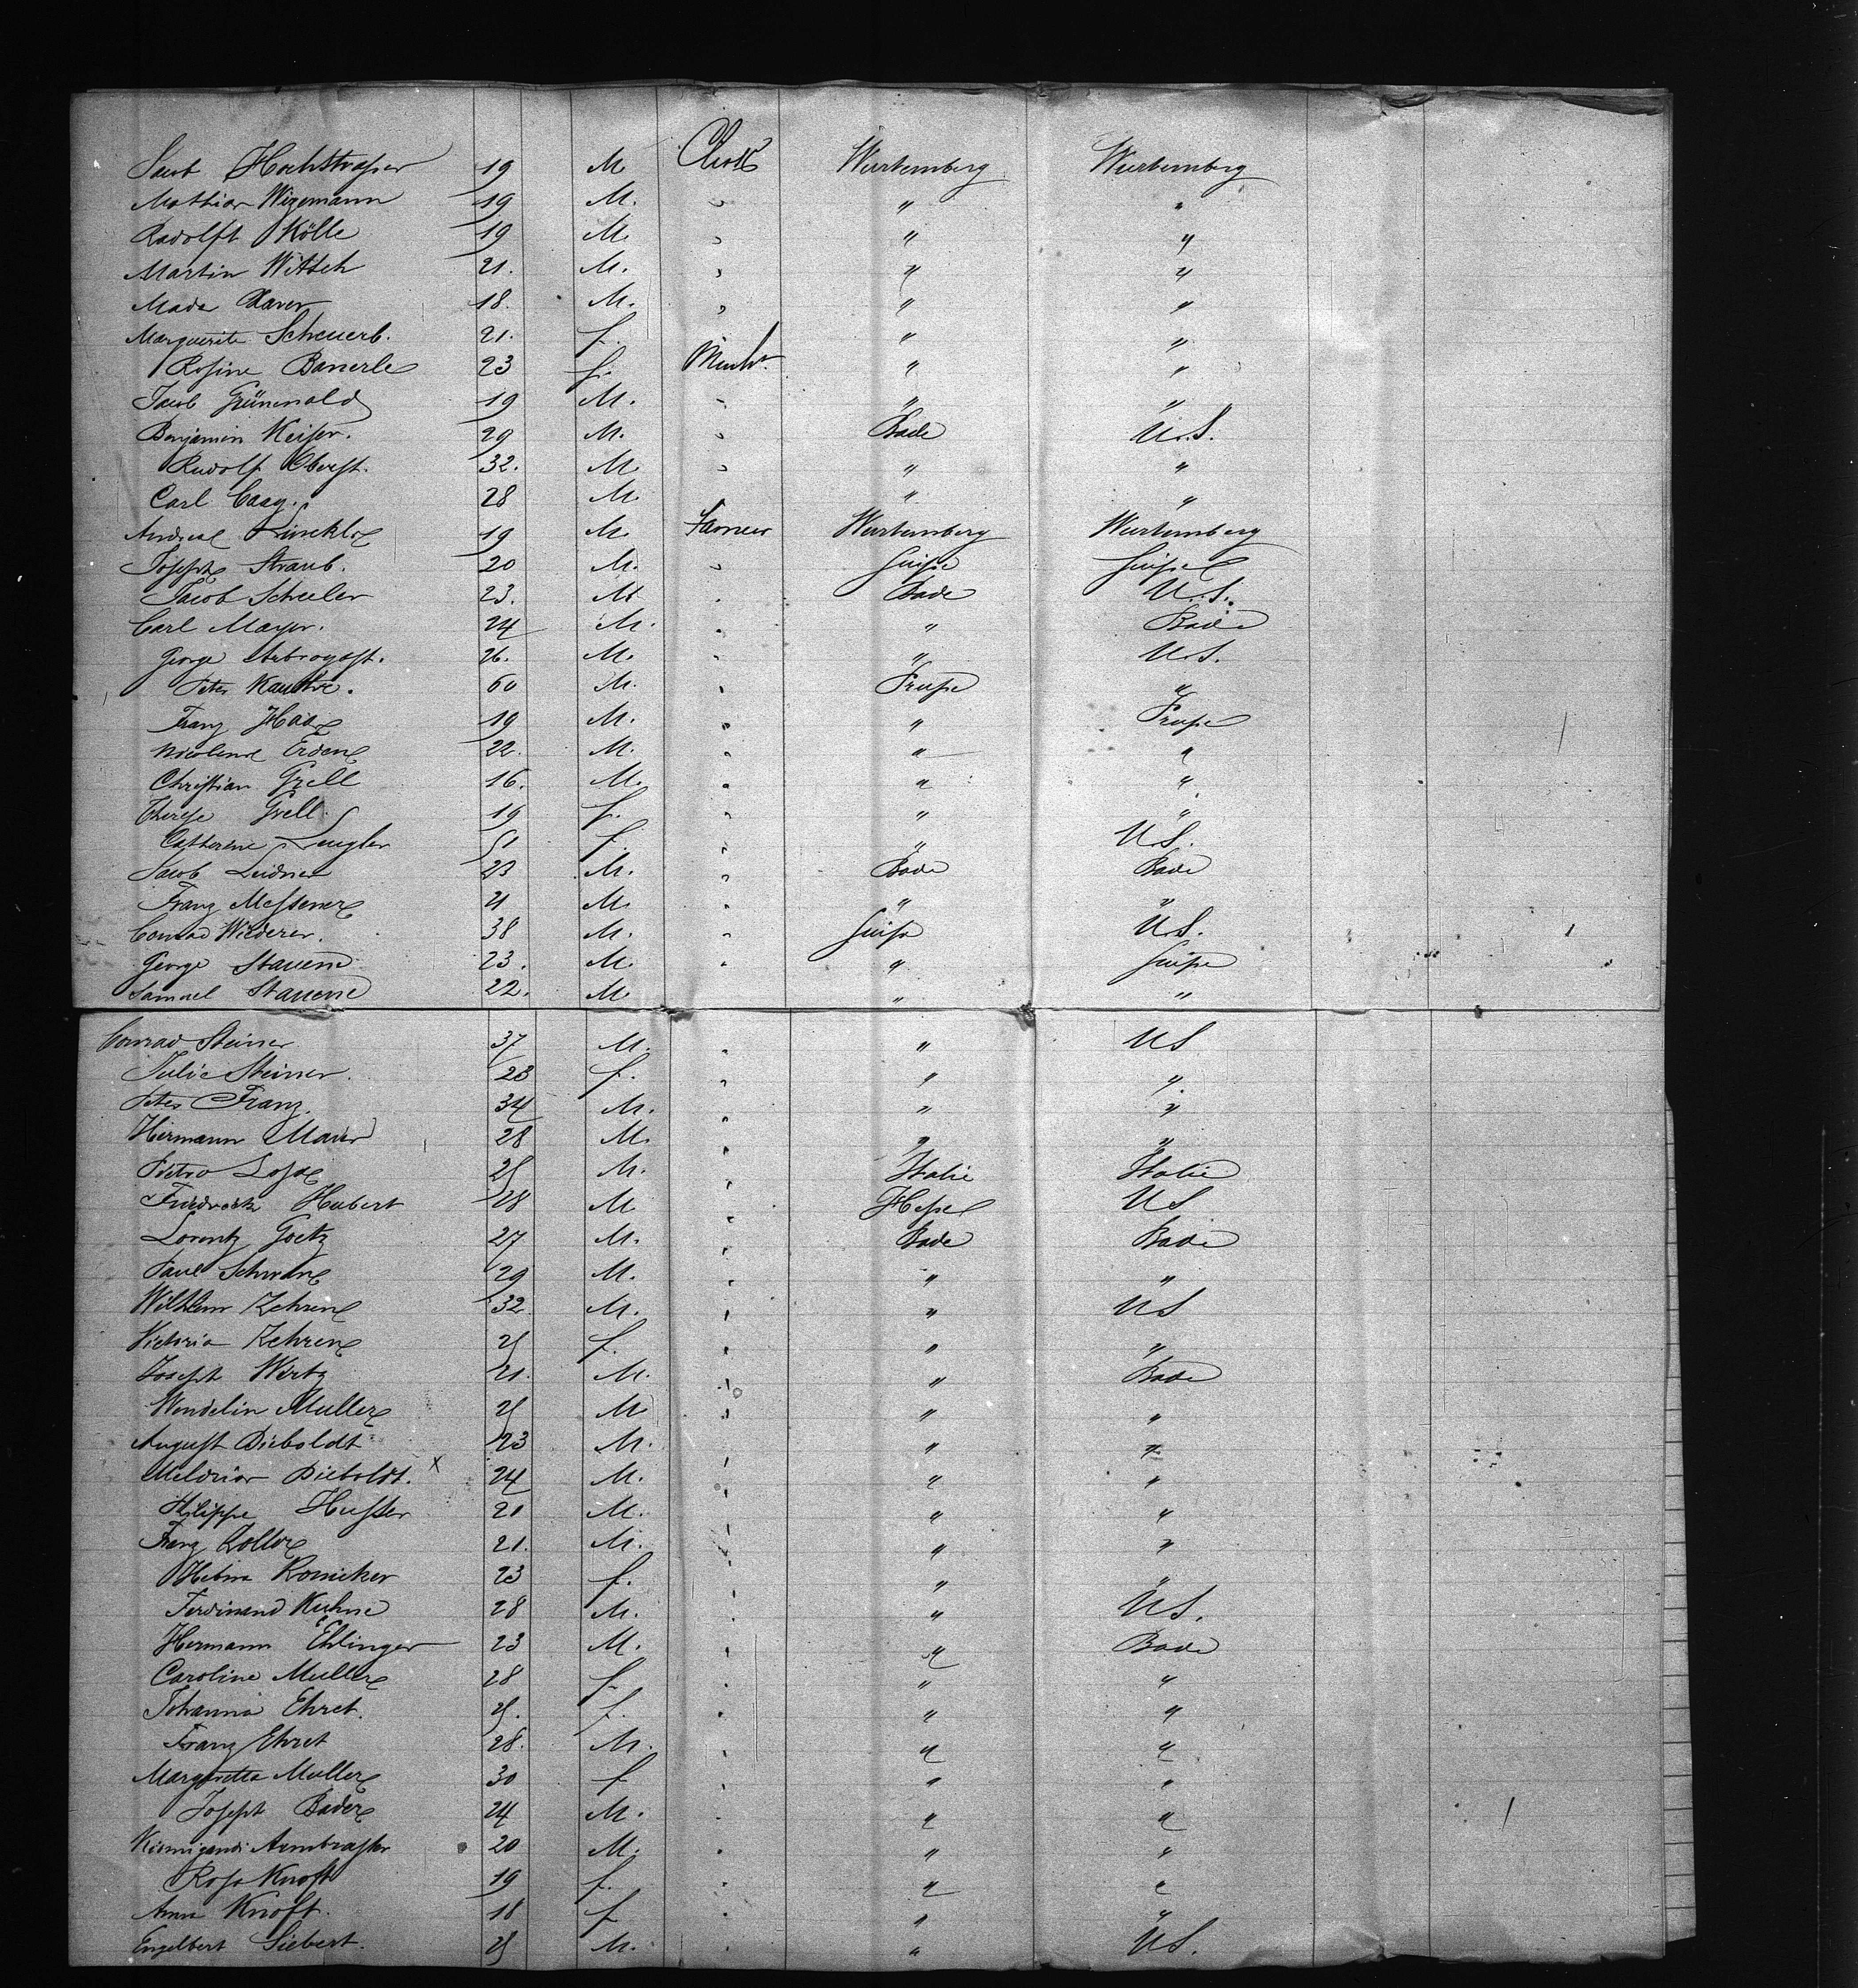 Jacob Hochstraßer 19 M Clerk Wurtemberg Wurtemberg
Mathias Wigemann 19 M. " " "
Radolft Kölle 19 M " " "
Martin Wittich 21. M. " " "
Mader Xaver 18. M. " " "
Marguerite Scheuerb. 21. f. " "
Rosine Bauerle 23 f. " "
Jacob Grünewald 19 M. " " "
Benjamin Keiser. 29 M. " Bade U.S.
Rudolf Oberst. 32. M. " " "
Carl 28 M. " "
Andreas 19 M Farmer Wurtemberg Wurtemberg
Joseph Straub. 20 M. " Suisse Suisse
Jacob Scheeler 23. M " Bade U.S.
Carl Mayer. 24 M. " " Bade
George Arbrogast. 26. M. " " U.S.
Peter 60 M. " Prusse "
Franz Haas 19 M. " " Prusse
Nicolaus Erden 22. M. " " "
Christian Grell 16. M. " " "
Therese Grell. 19 f. " " "
Catherine Lengler 51 f. " " U.S.
Jacob Leidner 23 M. " Bade Bade
Franz Messener 21 M. " " "
Conrad Wiederer. 38 M. " Suisse U.S.
George Staueni 23. M. " " Suisse
Samuel Staueni 22. M. " " "
Conrad Steiner 37 M. " " US
Julie Steiner. 23 f. " " "
Peter Franz. 34 M. " " "
Hermann Maier 28 M. " " "
Pietro 25 M. " Italie Italie
Friedrich Hubert 28 M " Hesse US
Lorentz Goetz 27 M. " Bade Bade
Paul Schwan 29 M. " " "
Wilhelm Zehren 32. M. " " US
Victoria Zehren 25 f. " " "
Joseph Wirtz 21. M. " " Bade
Wendelin Muller 25 M " " "
August Dieboldt 23 M. " " "
Melchior Dieboldt. x 24 M. " " "
Philippe Husser 21 M. " " "
Franz Zoller 21. M. " " "
Romicher 23 f. " " "
Ferdinand Kuhne 28 M. " " US.
Hermann Ehlinger 23 M. " " Bade
Caroline Muller 28 f. " "
Johanna Ehret. 25. f. " " "
Franz Ehret 28. M. " " "
Margaretta Muller 30 f " " "
Joseph Bader 24 M. " " "
Armbraster 20 M. " " "
Rosa Knoft 19 f. " " "
Anna Knoft. 18 f " " "
Engelbert Siebert. 25 M. " " US.